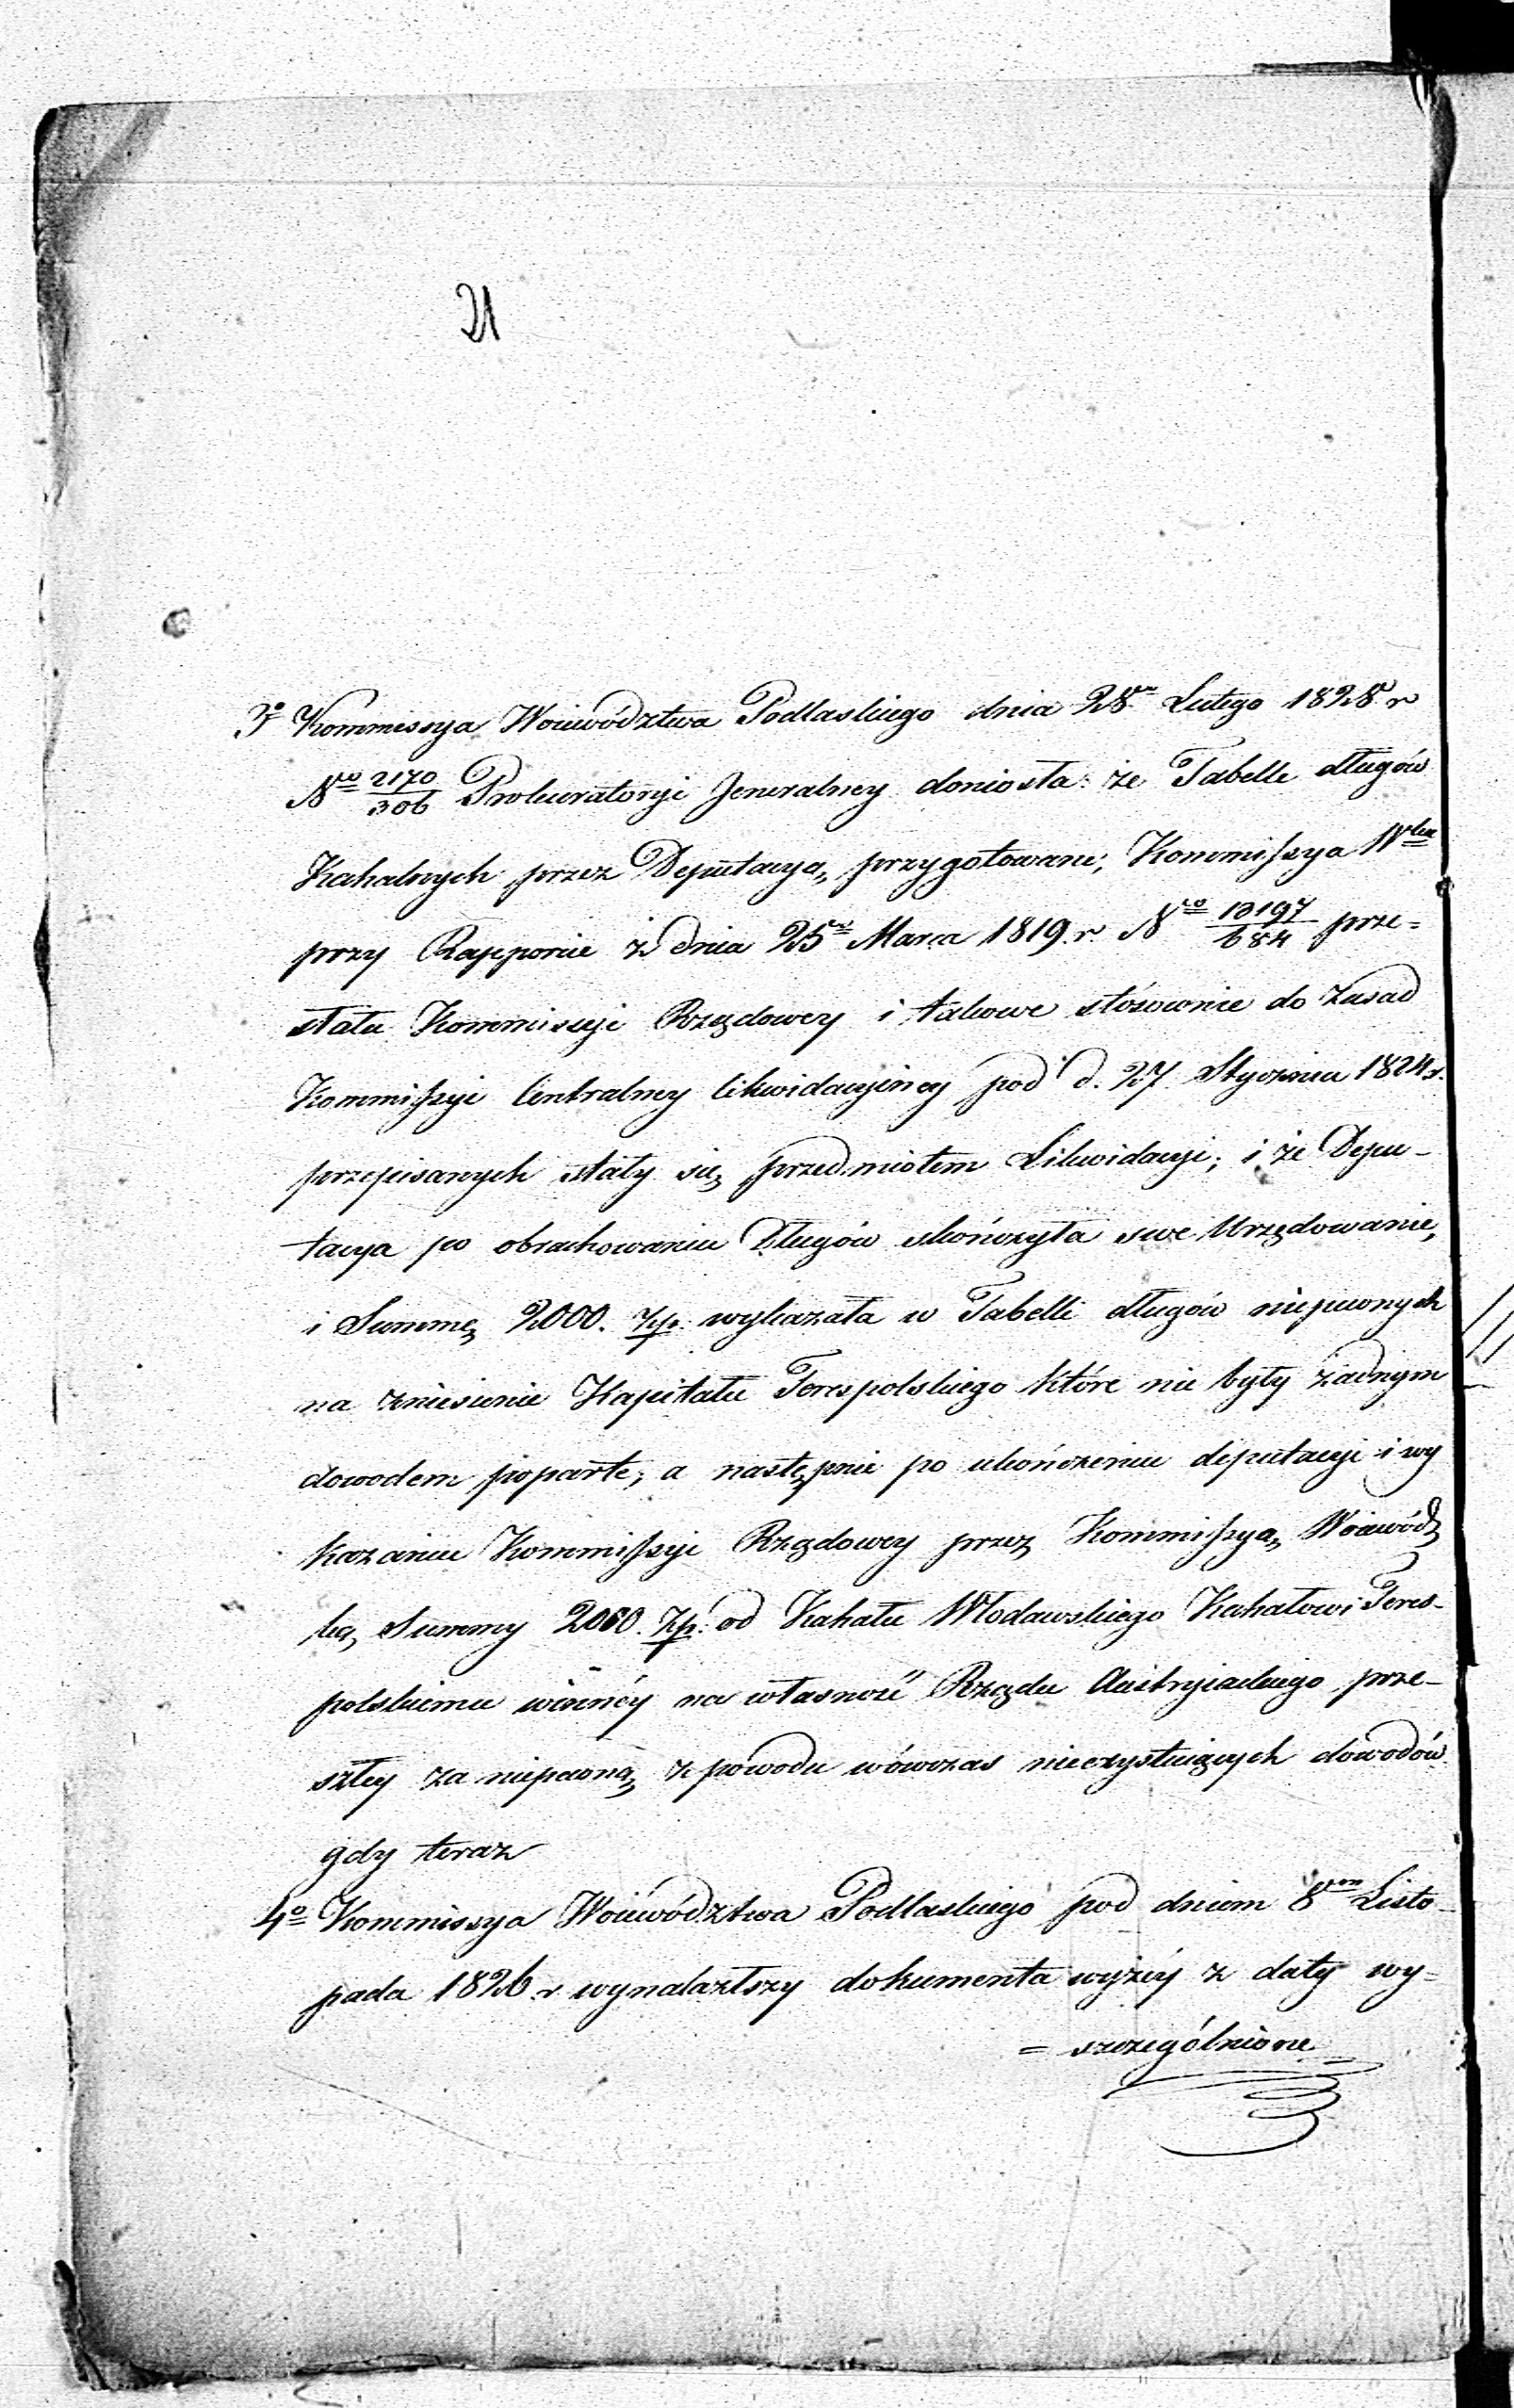 21
3º Kommissya Woiewództwa Podlaskiego dnia 28º Lutego 1828 r
Nro 2170/306 Prokuratoryi Jeneralney doniosła: że Tabelle długów
Kahalnych przez Deputacyą przygotowane; Kommissya Wdka
przy Rapporcie z dnia 25º Marca 1819. r. Nro 10197/684 prze=
słała Kommissyi Rządowey i takowe stósownie do zasad
Kommissyi Centralney likwidacyiney pod d. 27. Stycznia 1824 r.
przepisanych stały się przedmiotem Likwidacyi; i że Depu-
tacya po obrachowaniu Długów skończyła swe Urzędowanie,
i Summę 2000. złp. wykazała w Tabelli długów niepewnych
na zniesienie Kapitału Terespolskiego które nie były żadnym
dowodem poparte; a następnie po ukończeniu deputacyi i wy
kazaniu Kommissyi Rządowey przez Kommissyą Woiewódz
ką, Summy 2000. złp. od Kahału Włodawskiego Kahałowi Teres-
polskiemu winnéy na własność Rządu Austryiackiego prze-
szłey za niepewną, z powodu wówczas nieexystuiących dowodów.
gdy teraz
4º Kommissya Woiewództwa Podlaskiego pod dniem 8ym Listo-
pada 1826 r. wynalazłszy dokumenta wyżéy z daty wy=
= szczególnione